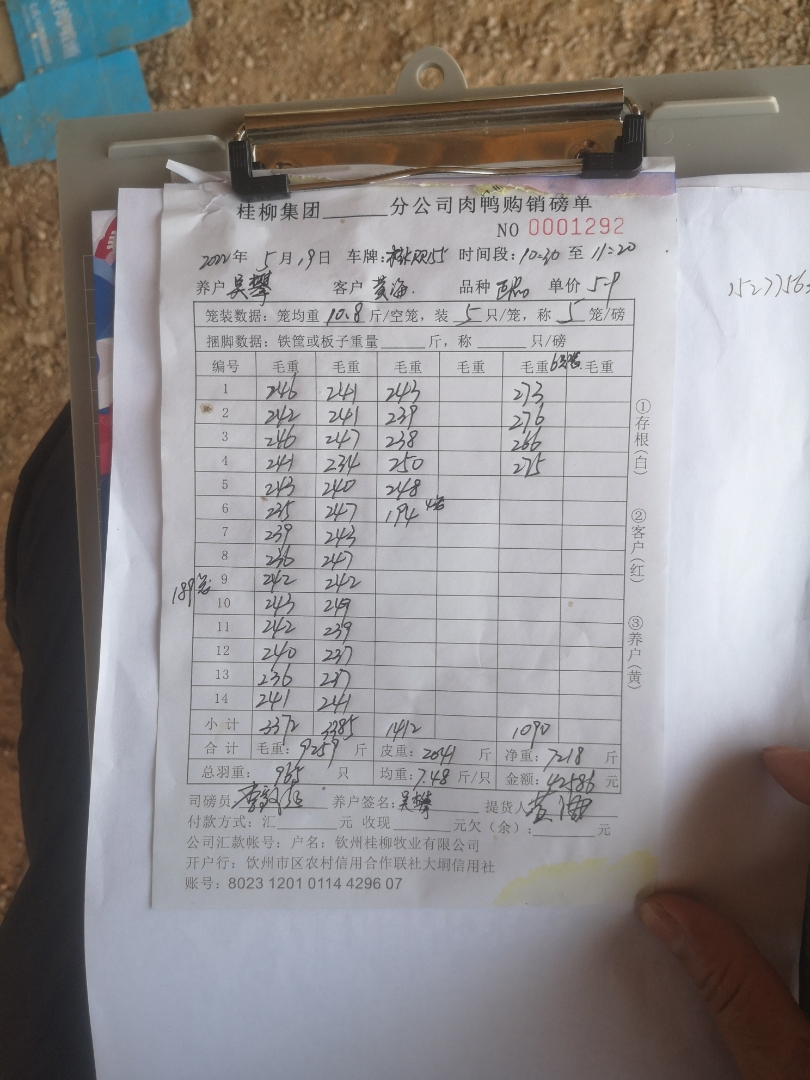 桂柳集团______分公司肉鸭购销磅单
NO 0001292
2022年 5月19日 车牌: 时间段:10:30 至 11:20
养户 吴攀 客户 黄海. 品种 单价 5.9
笼装数据: 笼均重 10.8 斤/空笼, 装 5 只/笼, 称 5 笼/磅
捆脚数据: 铁筐或板子重量______斤, 称______只/磅
编号 毛重 毛重 毛重 毛重 毛重 毛重
1 246 241 243 273
2 242 241 239 276
3 246 247 238 266
4 241 234 250 275
5 243 240 248
6 235 247 194 4笼
7 239 243
8 236 247
189笼 9 242 242
10 243 249
11 242 239
12 240 237
13 236 237
14 241 241
小计 3372 3385 1412 1090
合计 毛重: 9259 斤 皮重: 2041 斤 净重: 7218 斤
总羽重: 965 只 均重: 7.48 斤/只 金额: 42586 元
司磅员 养户签名: 吴攀 提货人
付款方式: 汇______元 收现______元欠(余):______元
公司汇款帐号: 户名: 钦州桂柳牧业有限公司
开户行: 钦州市区农村信用合作联社大垌信用社
账号: 8023 1201 0114 4296 07
①存根(白)
②客户(红)
③养户(黄)